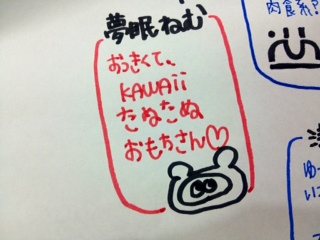 夢眠ねむ
おっきくて、
KAWAii
たぬたぬ
おもちさん♡
肉食系?
ゆー